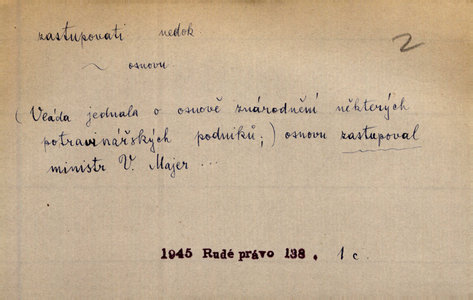 zastupovati nedok.
2
~ osnovu
(Vláda jednala o osnově znárodnění některých
potravinářských podniků;) osnovu zastupoval
ministr V. Majer ...
1945 Rudé právo 138. 1 c.